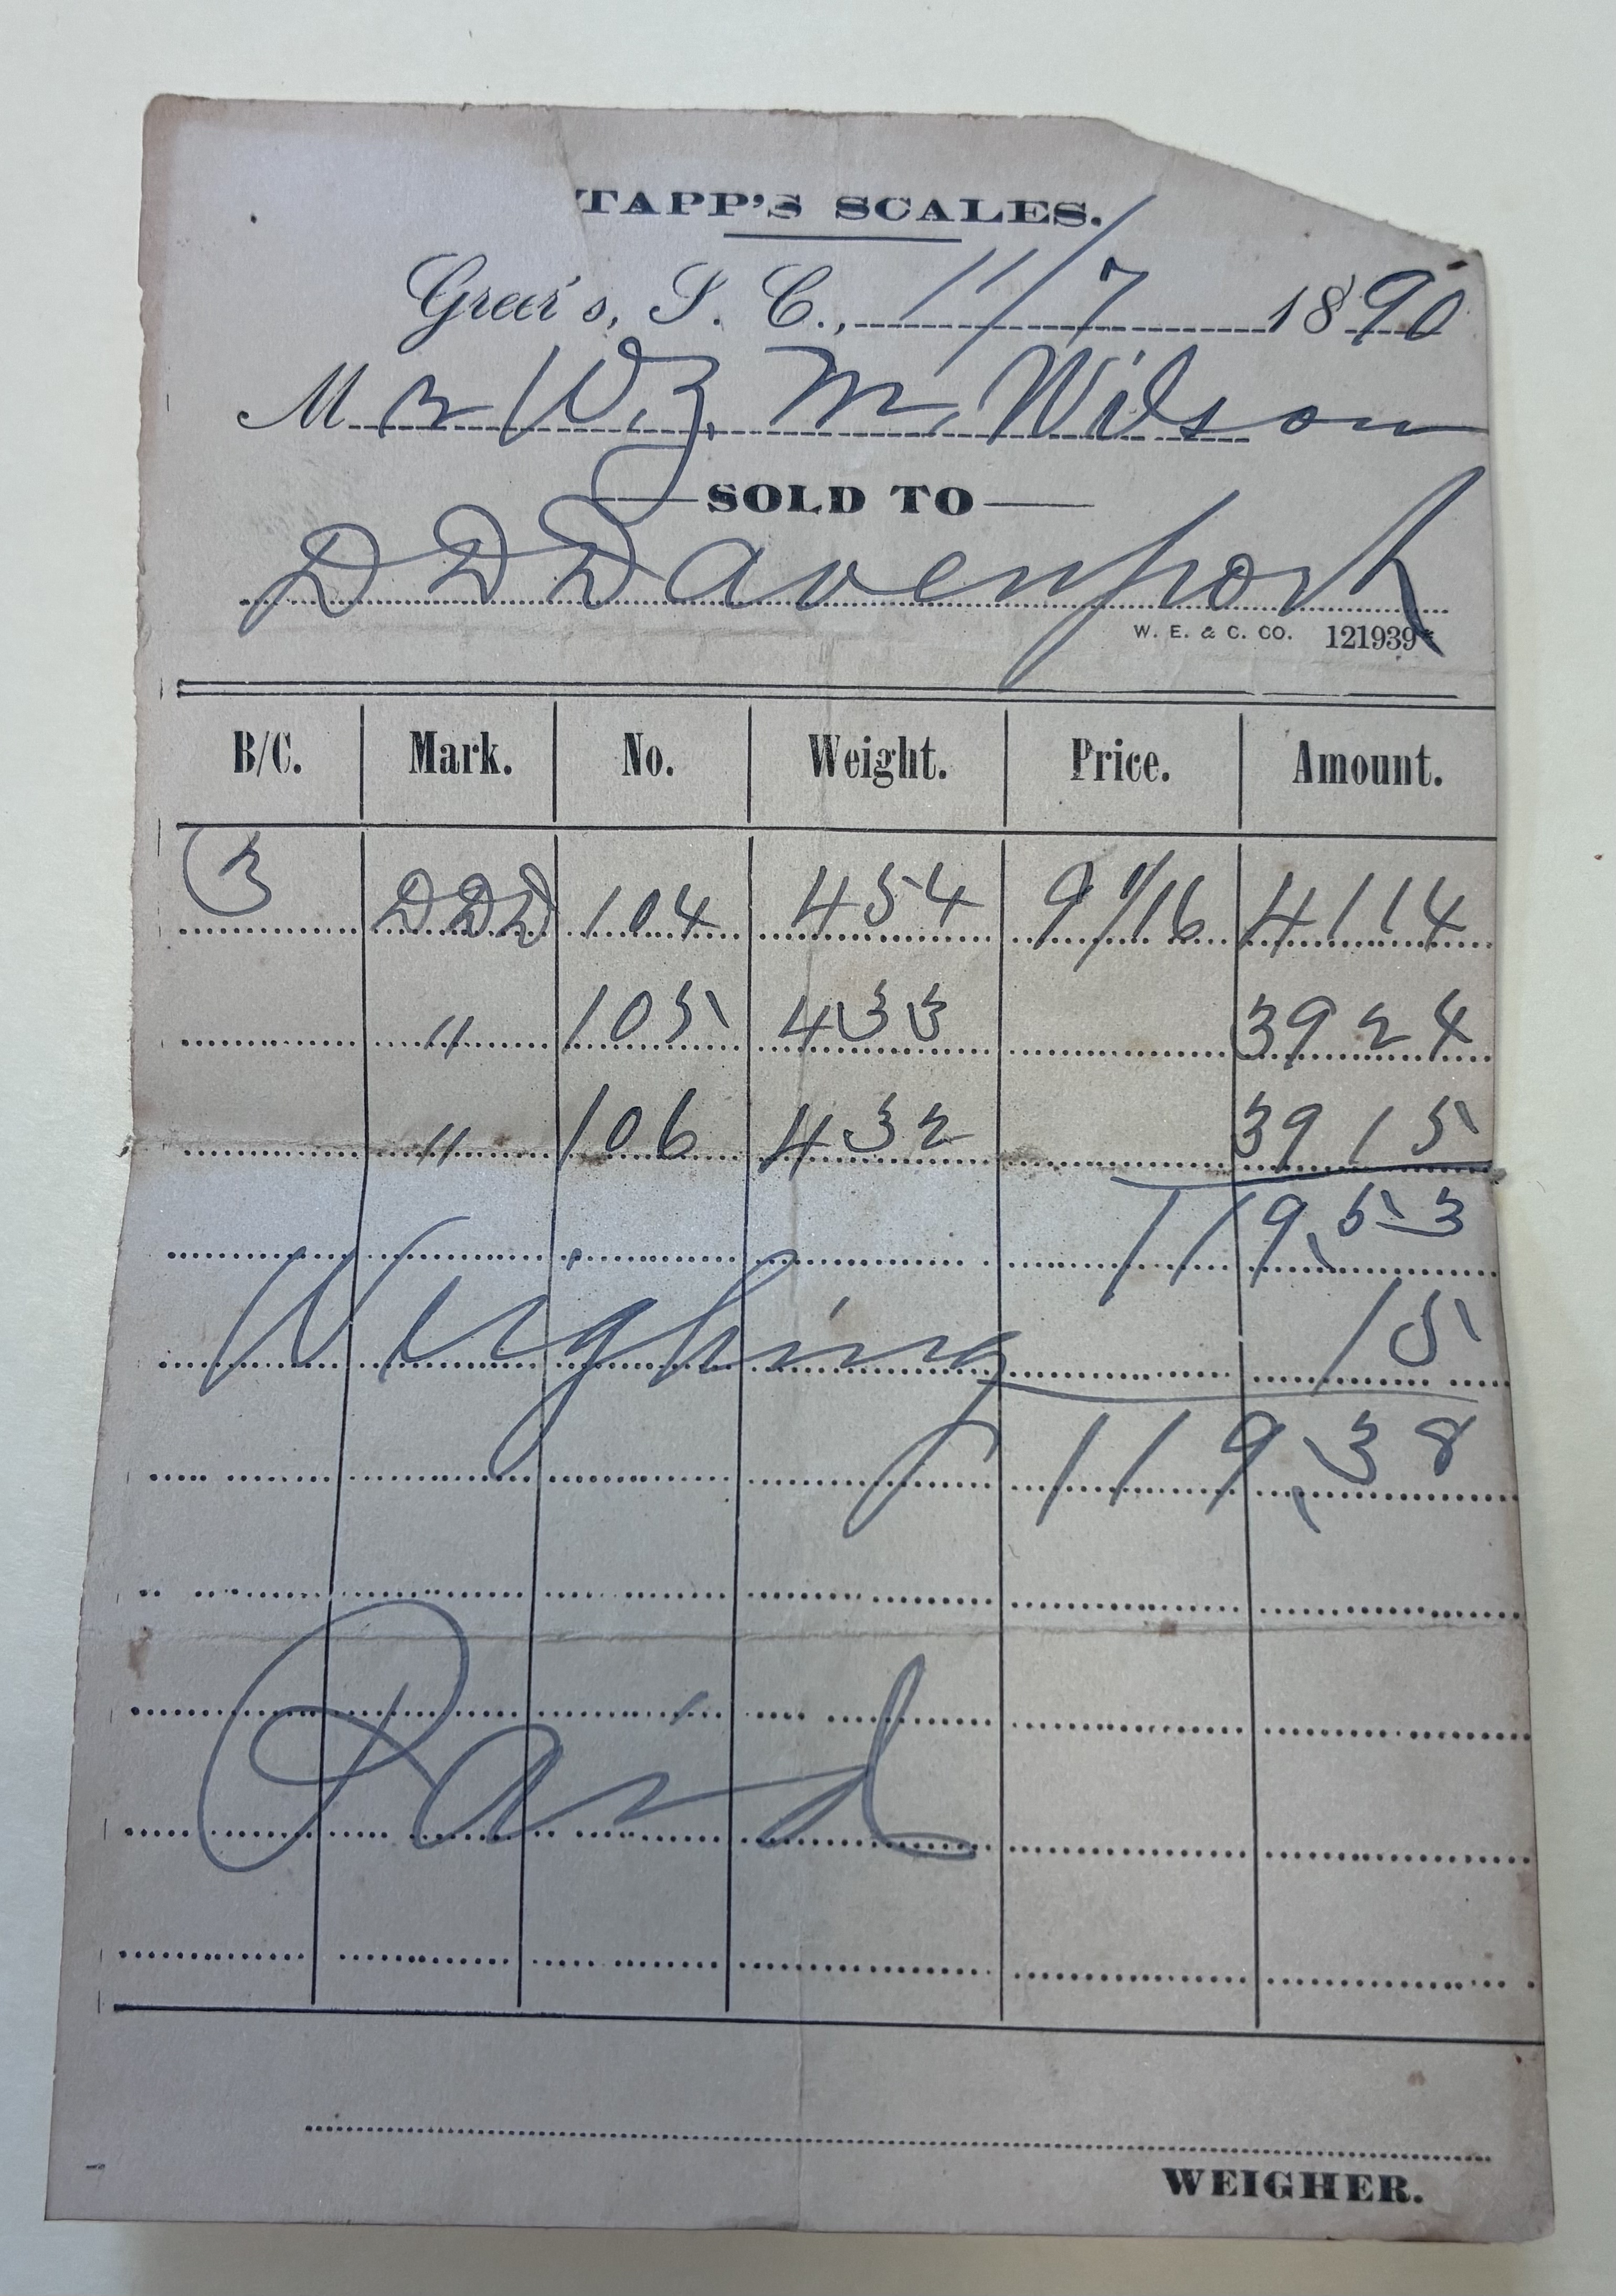 TAPP'S SCALES.
Greer's, S. C., 11/7 1890
Mr W. Z. McWilson
SOLD TO
D D Davenport
W. E. & C. CO. 121939
B/C. Mark. No. Weight. Price. Amount.
3 DDD 104 454 9 1/16 41 14
" 105 433 39 24
" 106 432 39 15
119.53
Weighing 15
119.38
Paid
WEIGHER.